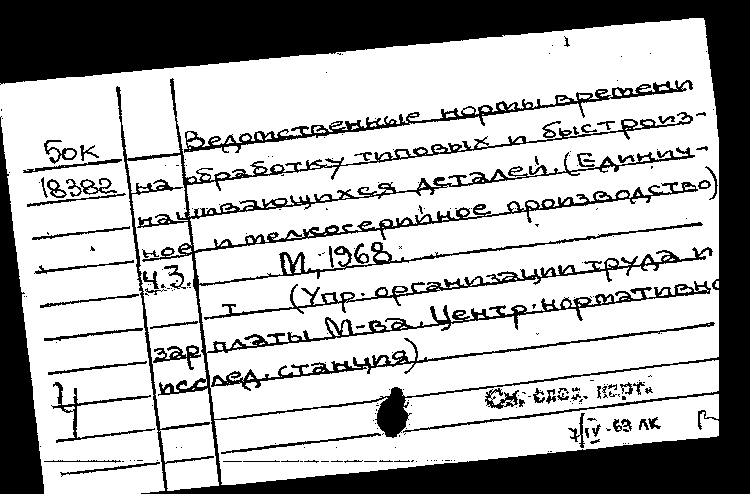 Ведомственные нормы времени
50К
на обработку типовых и быстроиз-
18382
нашивающихся деталей. (Единич-
ное и мелкосерийное производство)
Ч.3. М., 1968.
т. (Упр. организации труда и
зарплаты М-ва. Центр. нормативно
исслед. станция).
Ч
См. след. карт.
7/IV-69 ЛК